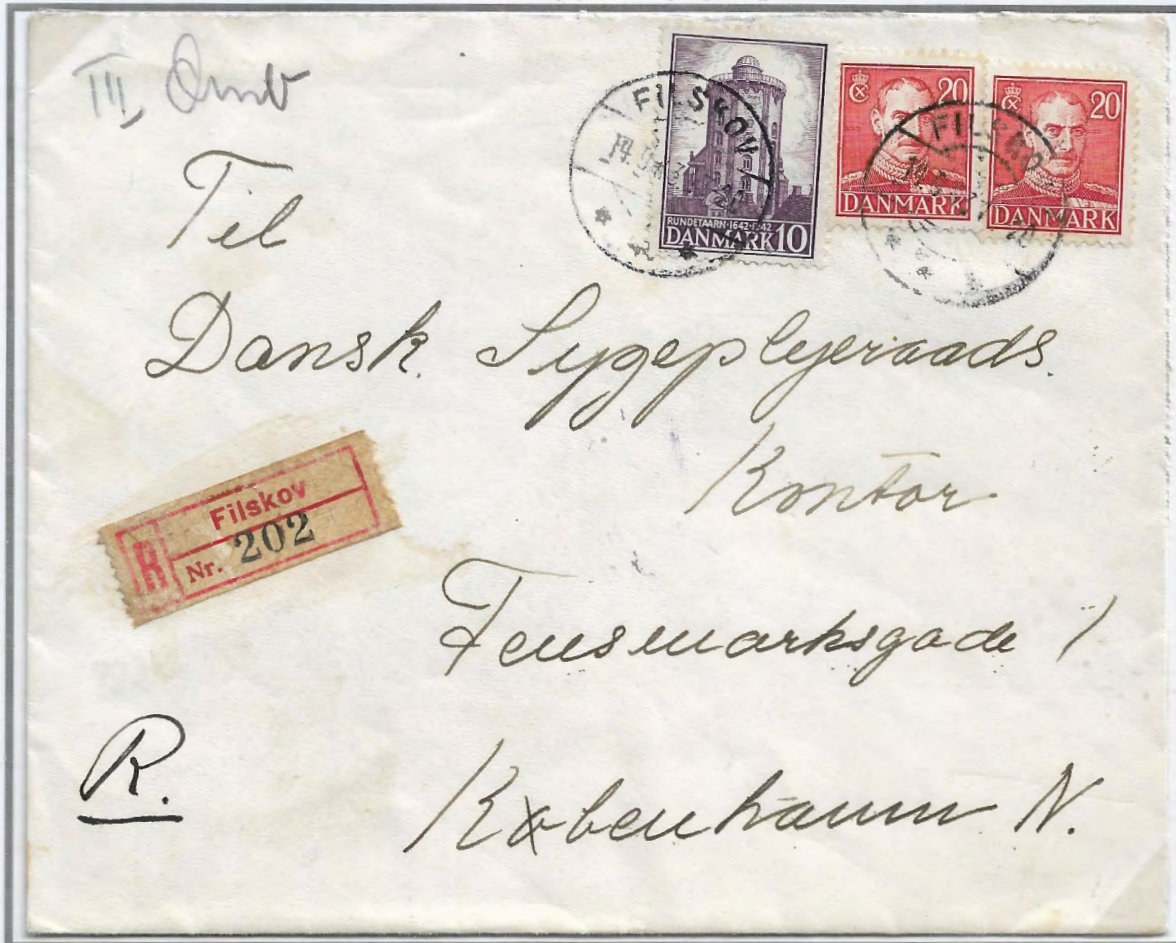 III Omb
FILSKOV
RUNDETAARN·1642·1942
DANMARK 10
20
DANMARK
20
DANMARK
FILSKO
Til
Dansk Sygeplejeraads
Kontor
R
Filskov
Nr. 202
Fensmarksgade 1
R.
København N.